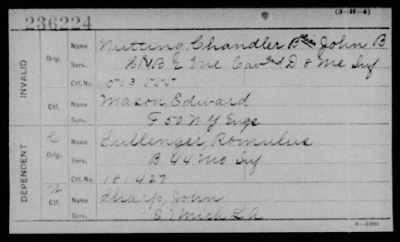 (3-H-4)
236224
INVALID
Orig. Name Nutting, Chandler B alias John B
Serv. & Me Cav D 8 Me Inf
Ctf. No. 503 555
Ctf. Name Mason, Edward
Serv. F 50 N Y Engs
DEPENDENT
C Orig. Name Cullenger, Romulus
Serv. B 44 Mo Inf
Ctf. No. 181427
W Ctf. Name Sharp, John
Serv. Mich L A